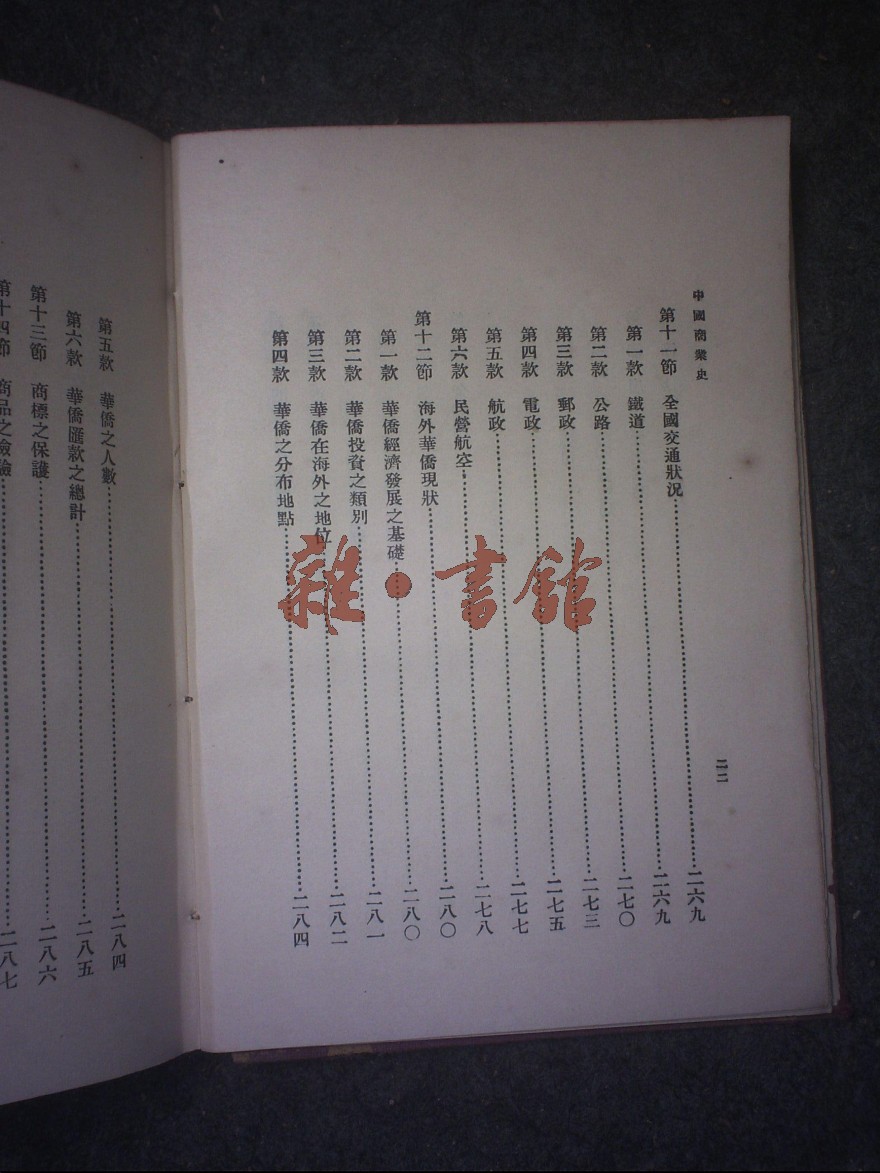 中國商業史
二二
第十一節 全國交通狀況……二六九
第一款 鐵道……二六九
第二款 公路……二七〇
第三款 郵政……二七三
第四款 電政……二七五
第五款 航政……二七七
第六款 民營航空……二七八
第十二節 海外華僑現狀……二八〇
第一款 華僑經濟發展之基礎……二八〇
第二款 華僑投資之類別……二八一
第三款 華僑在海外之地位……二八二
第四款 華僑之分布地點……二八四
第五款 華僑之人數……二八四
第六款 華僑匯款之總計……二八五
第十三節 商標之保護……二八六
第十四節 商品之檢驗……二八七
雜·書館